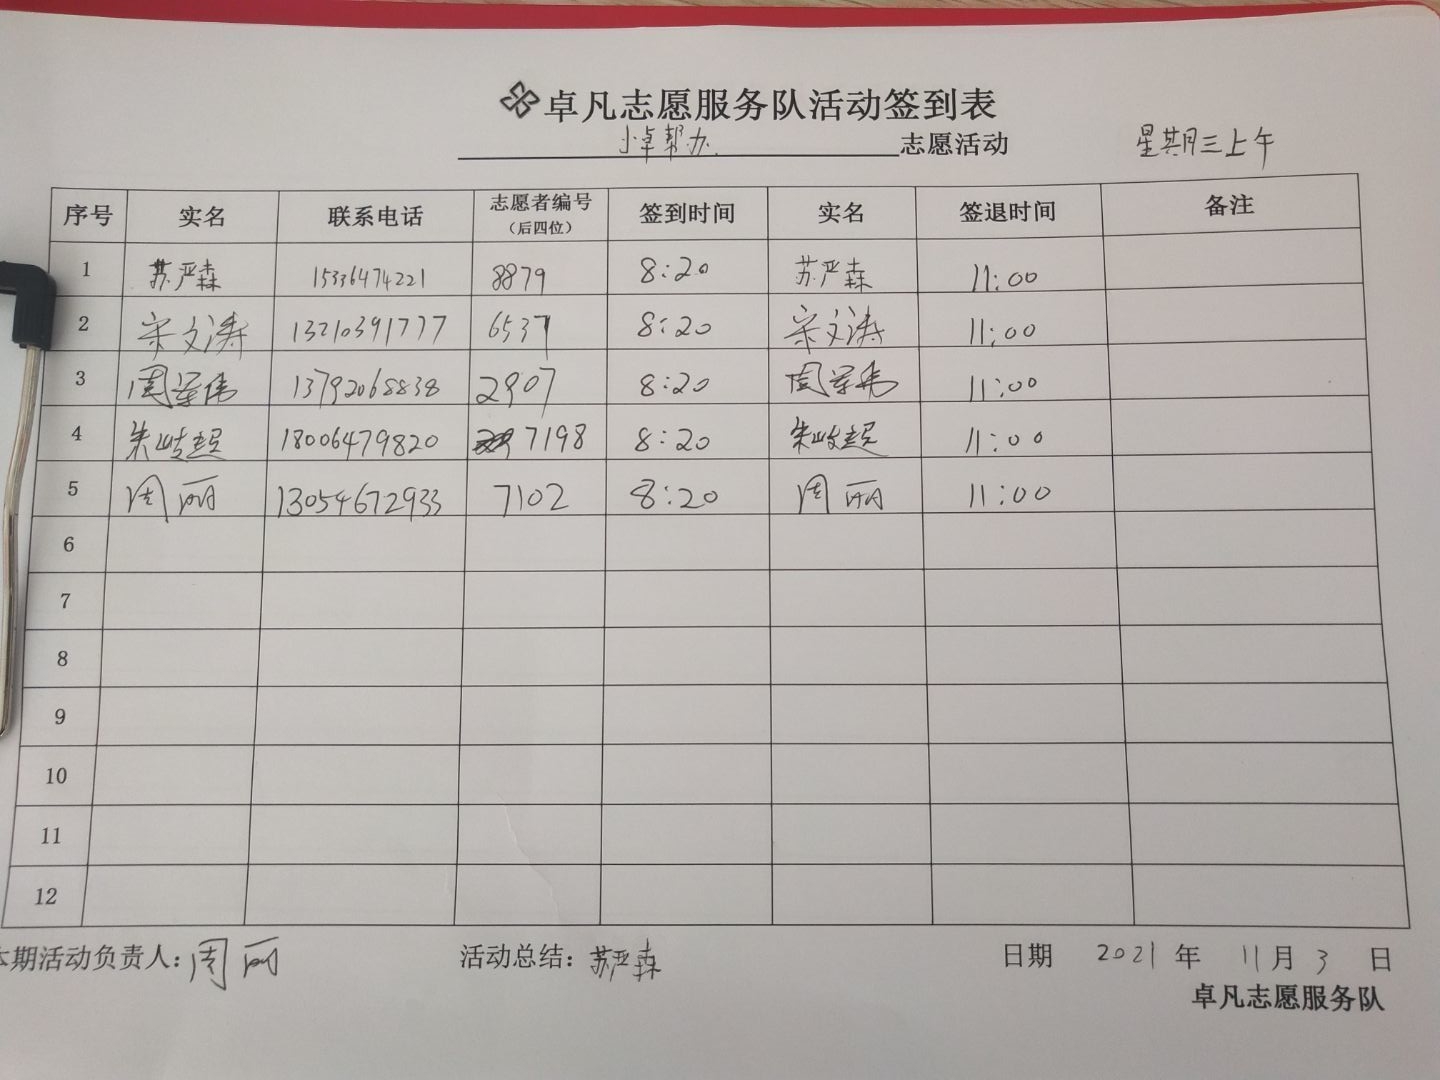 卓凡志愿服务队活动签到表
小卓帮办 志愿活动 星期三上午
序号 实名 联系电话 志愿者编号（后四位） 签到时间 实名 签退时间 备注
1 苏严森 15336474221 8879 8:20 苏严森 11:00
2 宋文涛 13210391777 6537 8:20 宋文涛 11:00
3 13792068838 2907 8:20 11:00
4 朱岐超 18006479820 7198 8:20 朱岐超 11:00
5 周丽 13054672933 7102 8:20 周丽 11:00
6
7
8
9
10
11
12
本期活动负责人：周丽 活动总结：苏严森 日期 2021 年 11 月 3 日
卓凡志愿服务队